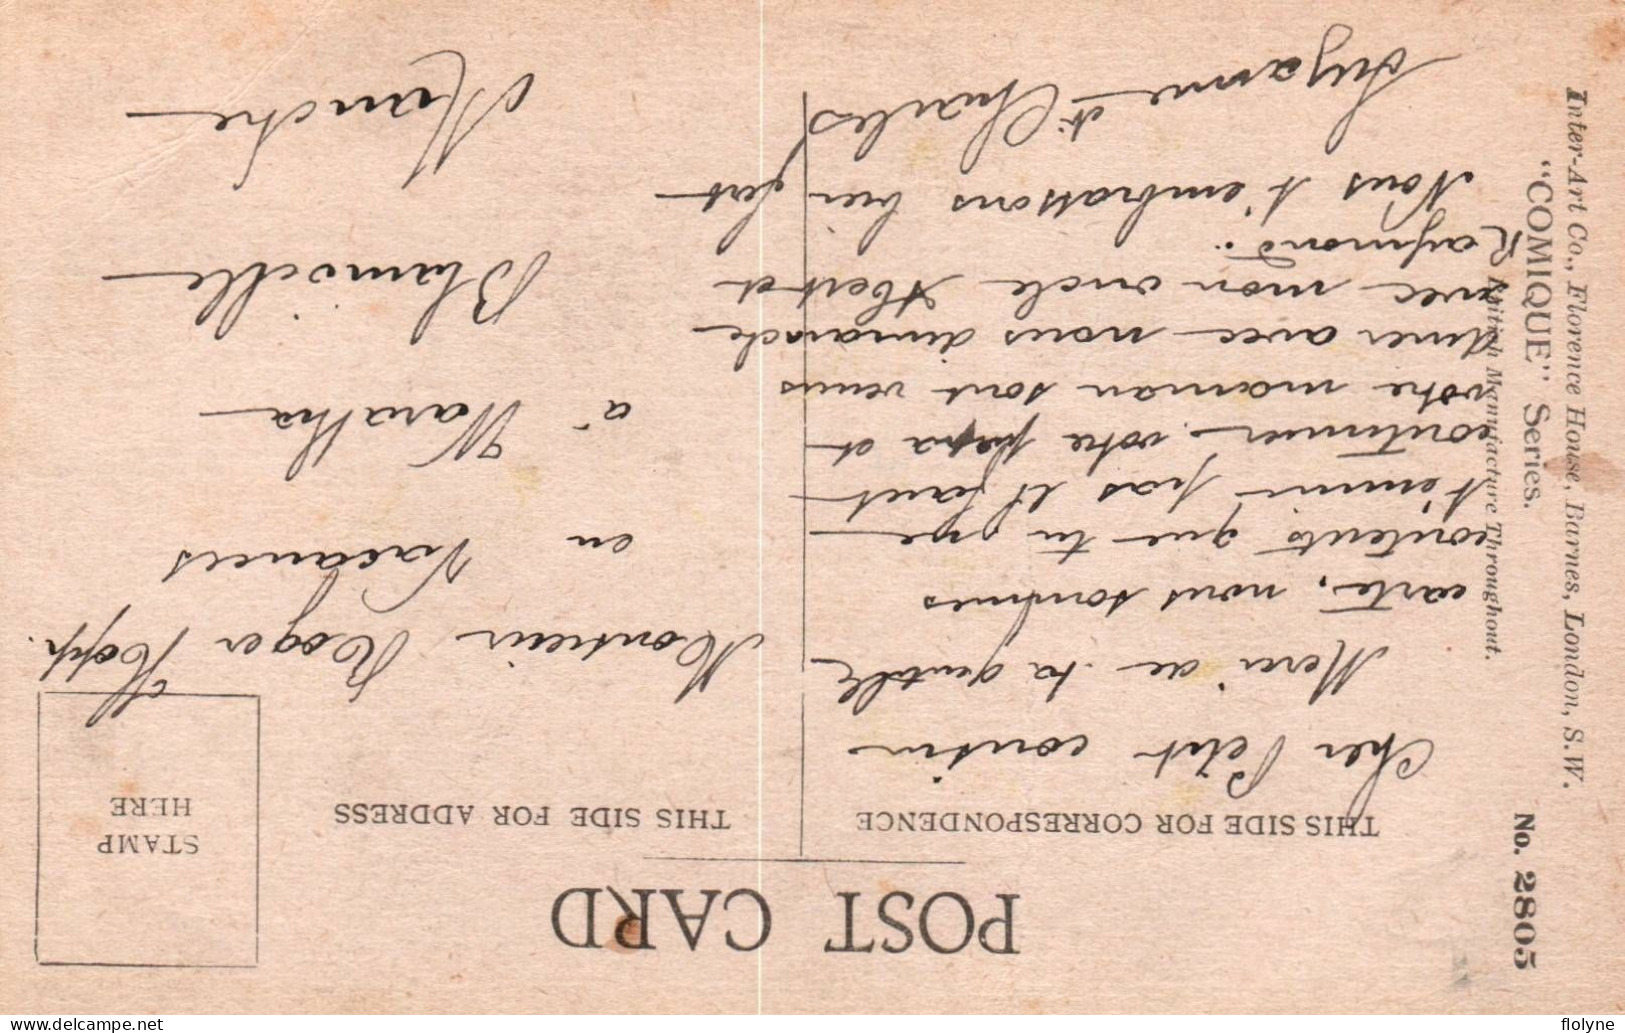 POST CARD
THIS SIDE FOR CORRESPONDENCE
Cher Petit cousin
Merci de ta gentille
carte, nous sommes
contents que tu ne
t'ennui pas il faut
continuer, votre papa et
votre maman sont venus
diner avec nous dimanche
avec mon oncle Albert et
Raymond.
Nous t'embrassons bien fort
Suzanne et Charles
THIS SIDE FOR ADDRESS
STAMP
HERE
Monsieur Roger Hopp.
en Vacances
à
Blainville
Manche
Inter-Art Co., Florence House, Barnes, London, S.W.
"COMIQUE" Series.
British Manufacture Throughout.
No. 2805
flolyne